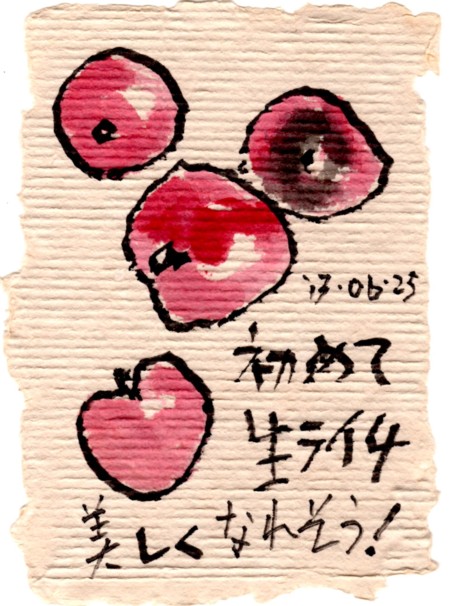 '13.06.25
初めて
生ライチ
美しくなれそう!